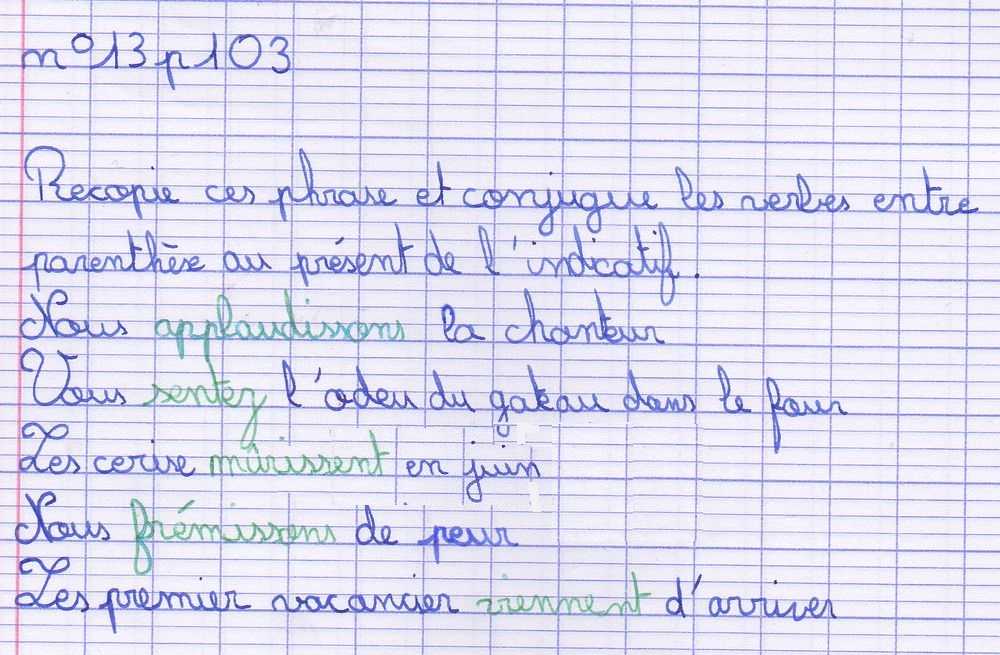 n°13 p 103
Recopie ces phrase et conjugue les verbes entre
parenthèse au présent de l'indicatif.
Nous applaudissons la chanteur
Vous sentez l'odeu du gateau dans le four
Les cerise mûrissent en juin
Nous frémissons de peur
Les premier vacancier viennent d'arriver